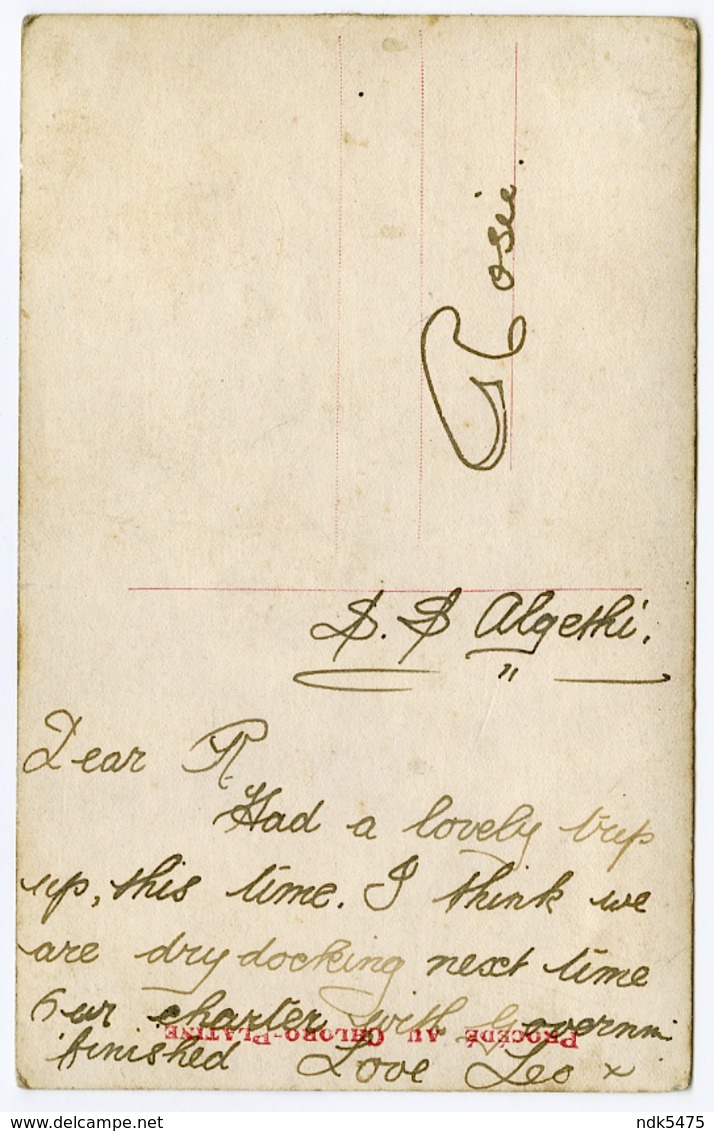 Rosie.
S.S Algethi.
"
Dear R
Had a lovely trip
up, this time. I think we
are dry docking next time
Our charter with Governm
finished Love Leo x
PROCEDE AU CHLORO-PLATINE
www.delcampe.net
ndk5475